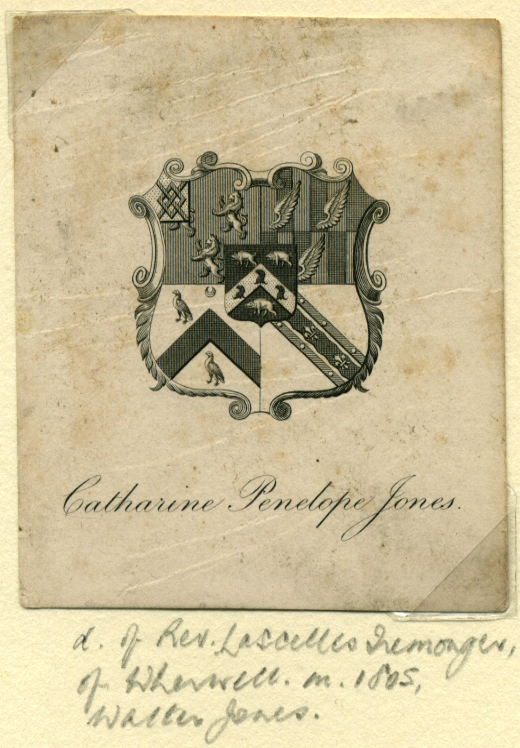 Catharine Penelope Jones.
d. of Rev. Lascelles Iremonger,
of Wherwell. m. 1805,
Walter Jones.